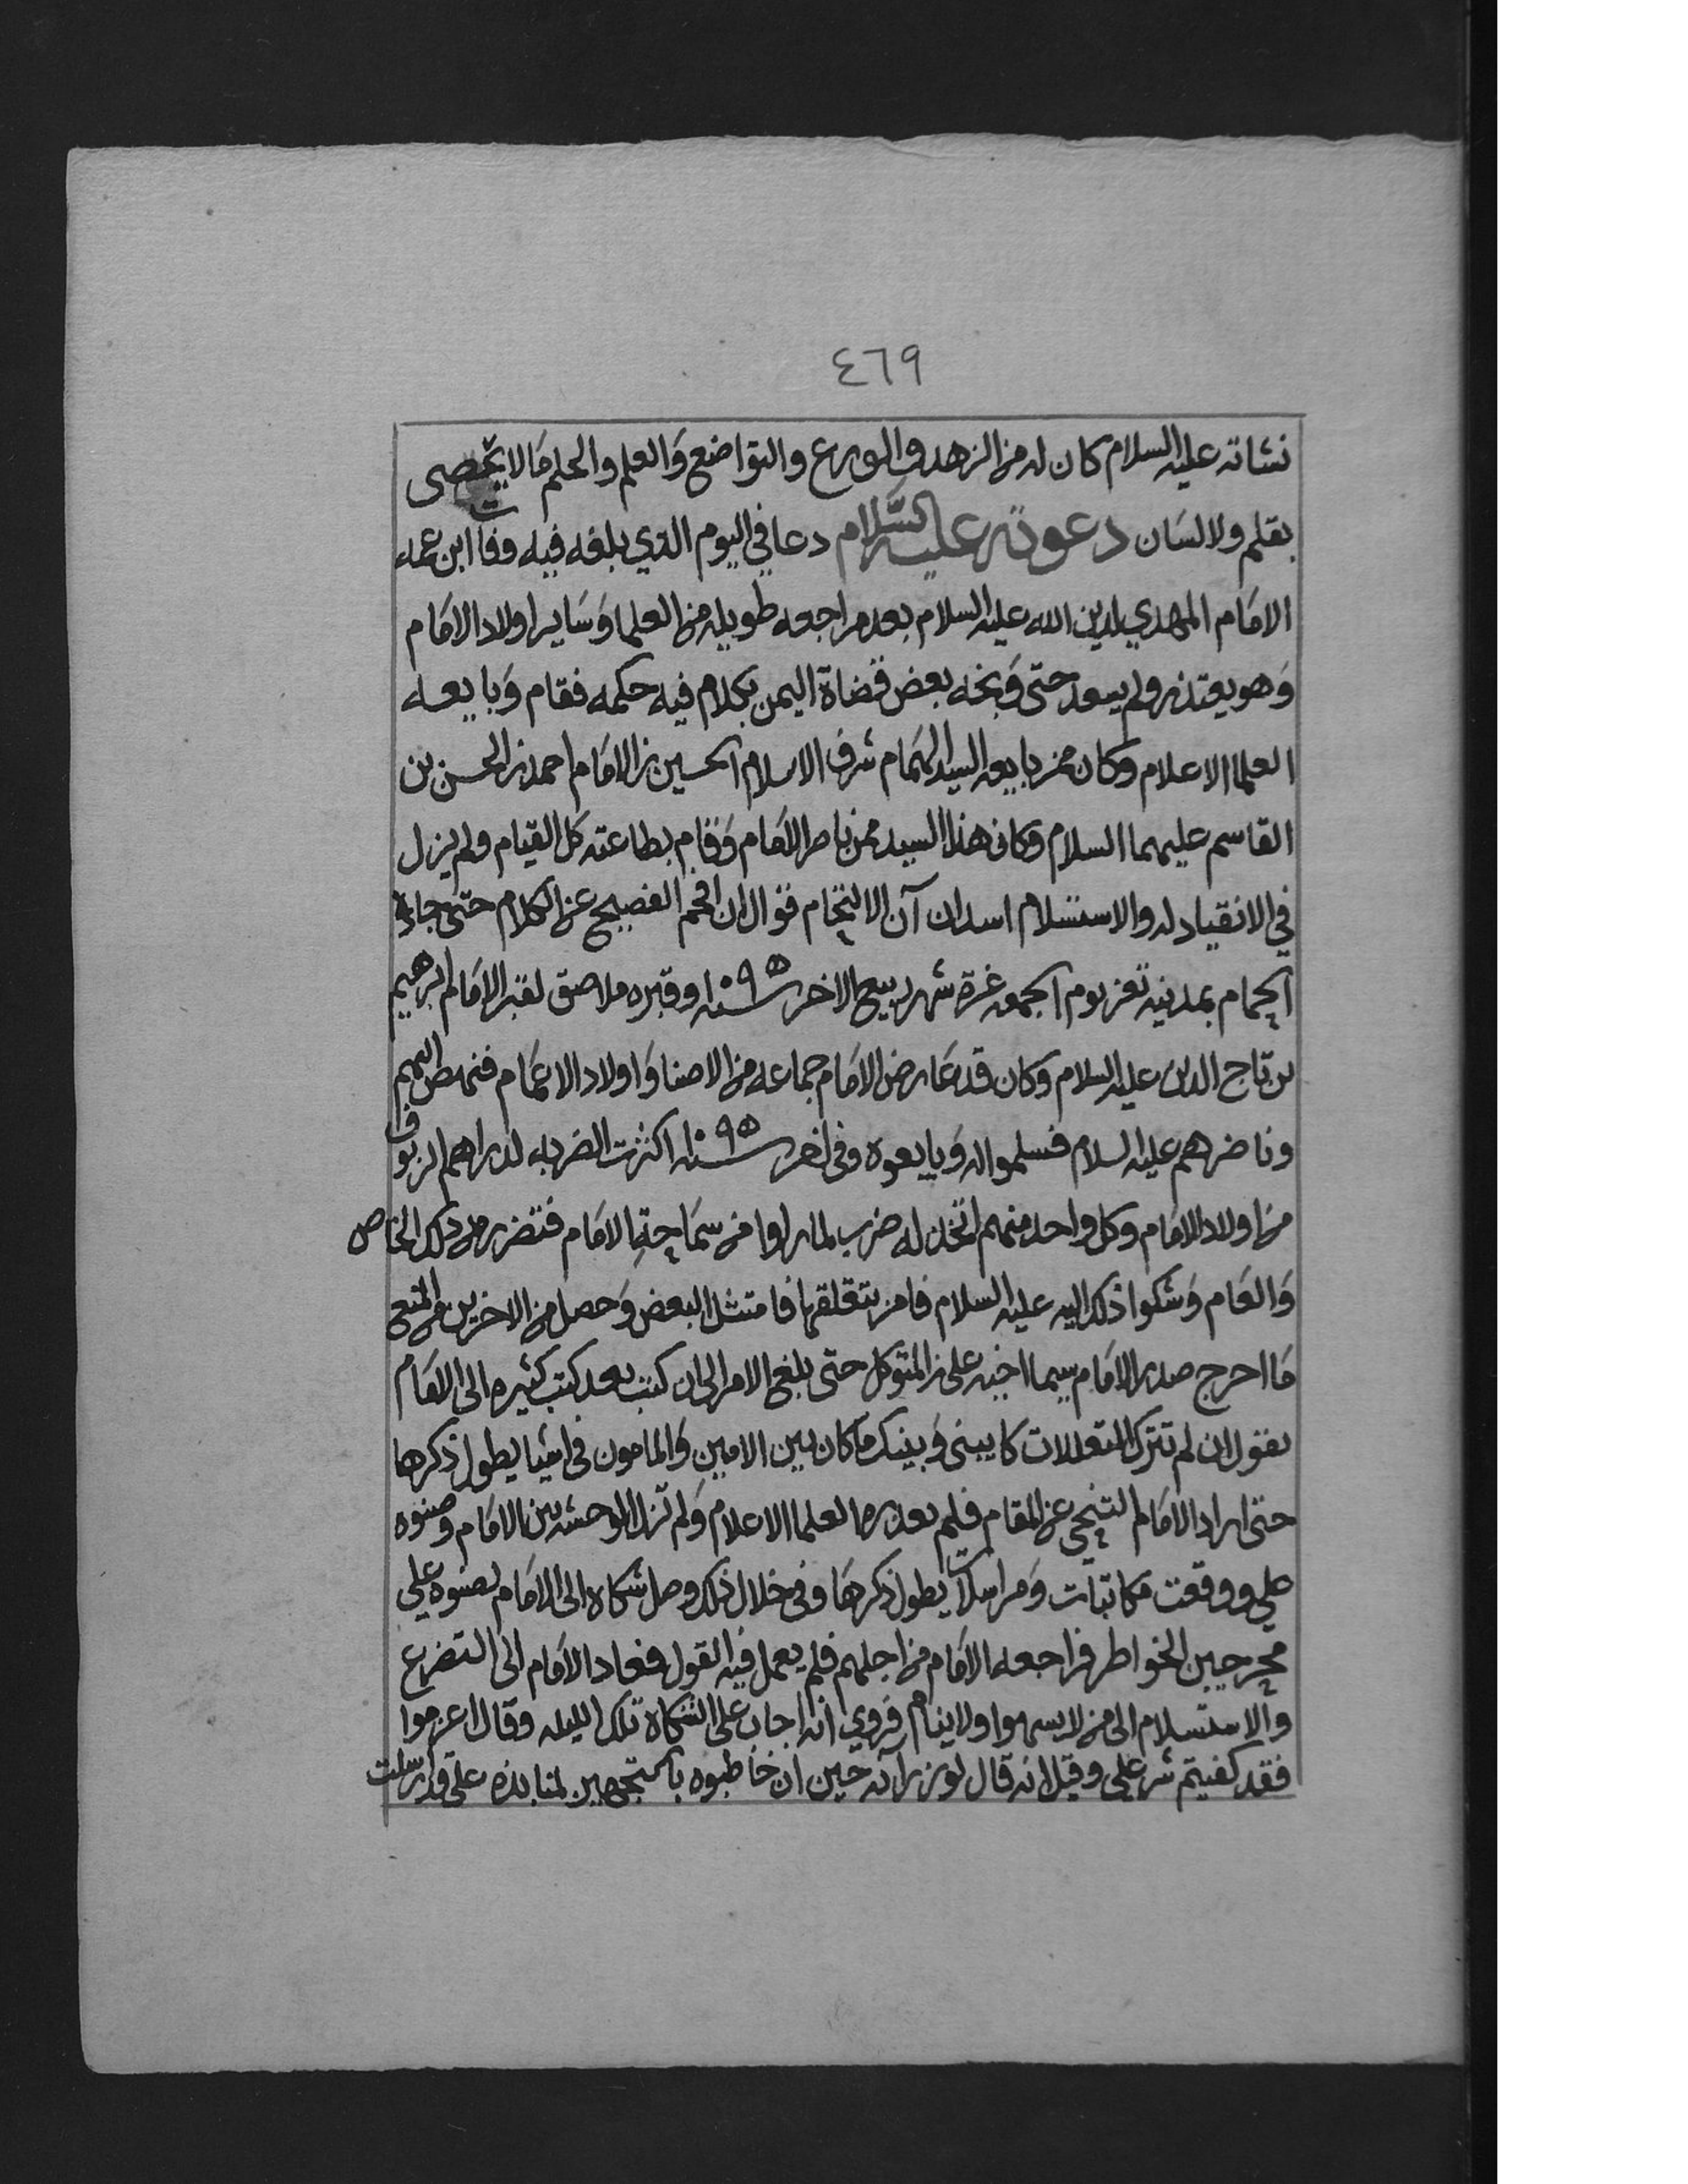 ٤٦٩
نشاته عليه السلام كان له من الزهد والورع والتواضع والعلم والحلم مالا يحصى
بقلم ولا لسان دعوته عليه السلام دعا في اليوم الذي بلغه فيه وفات ابن عمه
الامام المهدي لدين الله عليه السلام بعد مراجعه طويله من العلما وساير اولاد الامام
وهو يعتذر ولم يسعد حتى وبخه بعض قضاة اليمن بكلام فيه حكمه فقام وبايعه
العلما الاعلام وكان ممن بايعه السيد الهمام شرف الاسلام الحسين بن الامام احمد بن الحسن بن
القاسم عليهما السلام وكان هذا السيد ممن ناصر الامام وقام بطاعته كل القيام ولم يزل
في الانقياد له والاستسلام اسدان آن الالتحام قوال ان افحم الفصيح عن الكلام حتى جاءه
الحمام بمدينة تعز يوم الجمعه غرة شهر ربيع الاخر سنة ١٠٩٥ وقبره ملاصق لقبر الامام ابرهيم
بن تاج الدين عليه السلام وكان قد عارض الامام جماعه من الاصنا واولاد الاعمام فنهض اليهم
وناضرهم عليه السلام فسلموا له وبايعوه وفي اخر سنة ١٠٩٥ اكثرت الضربه لدراهم الزيوف
من اولاد الامام وكل واحد منهم اتخذ له ضرب لما راوا من سماحة الامام فتضرر من ذلك الخاص
والعام وشكوا ذلك اليه عليه السلام فامر بتغلقها فامتثل البعض وحصل من الاخرين من المنع
ما احرج صدر الامام سيما اخيه علي بن المتوكل حتى بلغ الامر الى ان كتب بعد كتب كثيره الى الامام
يقول ان لم تترك التعللات كا بيني وبينك ما كان بين الامين والمامون في اشيا يطول ذكرها
حتى اراد الامام التنحي عن المقام فلم يعذره العلما الاعلام ولم تزل الوحشه بين الامام وصنوه
علي ووقعت مكاتبات ومراسلات يطول ذكرها وفي خلال ذلك وصل شكاه الى الامام بصنوه علي
مجرحين الخواطر فراجعه الامام من اجلهم فلم يعمل فيه القول فعاد الامام الى التضرع
والاستسلام الى من لا يسهوا ولا ينام فروي انه اجاب على الشكاه تلك الليله وقال اعزموا
فقد كفيتم شر علي وقيل انه قال لوزرآئه حين ان خاطبوه بالتجهيز لمنابذه علي قد ارسلت